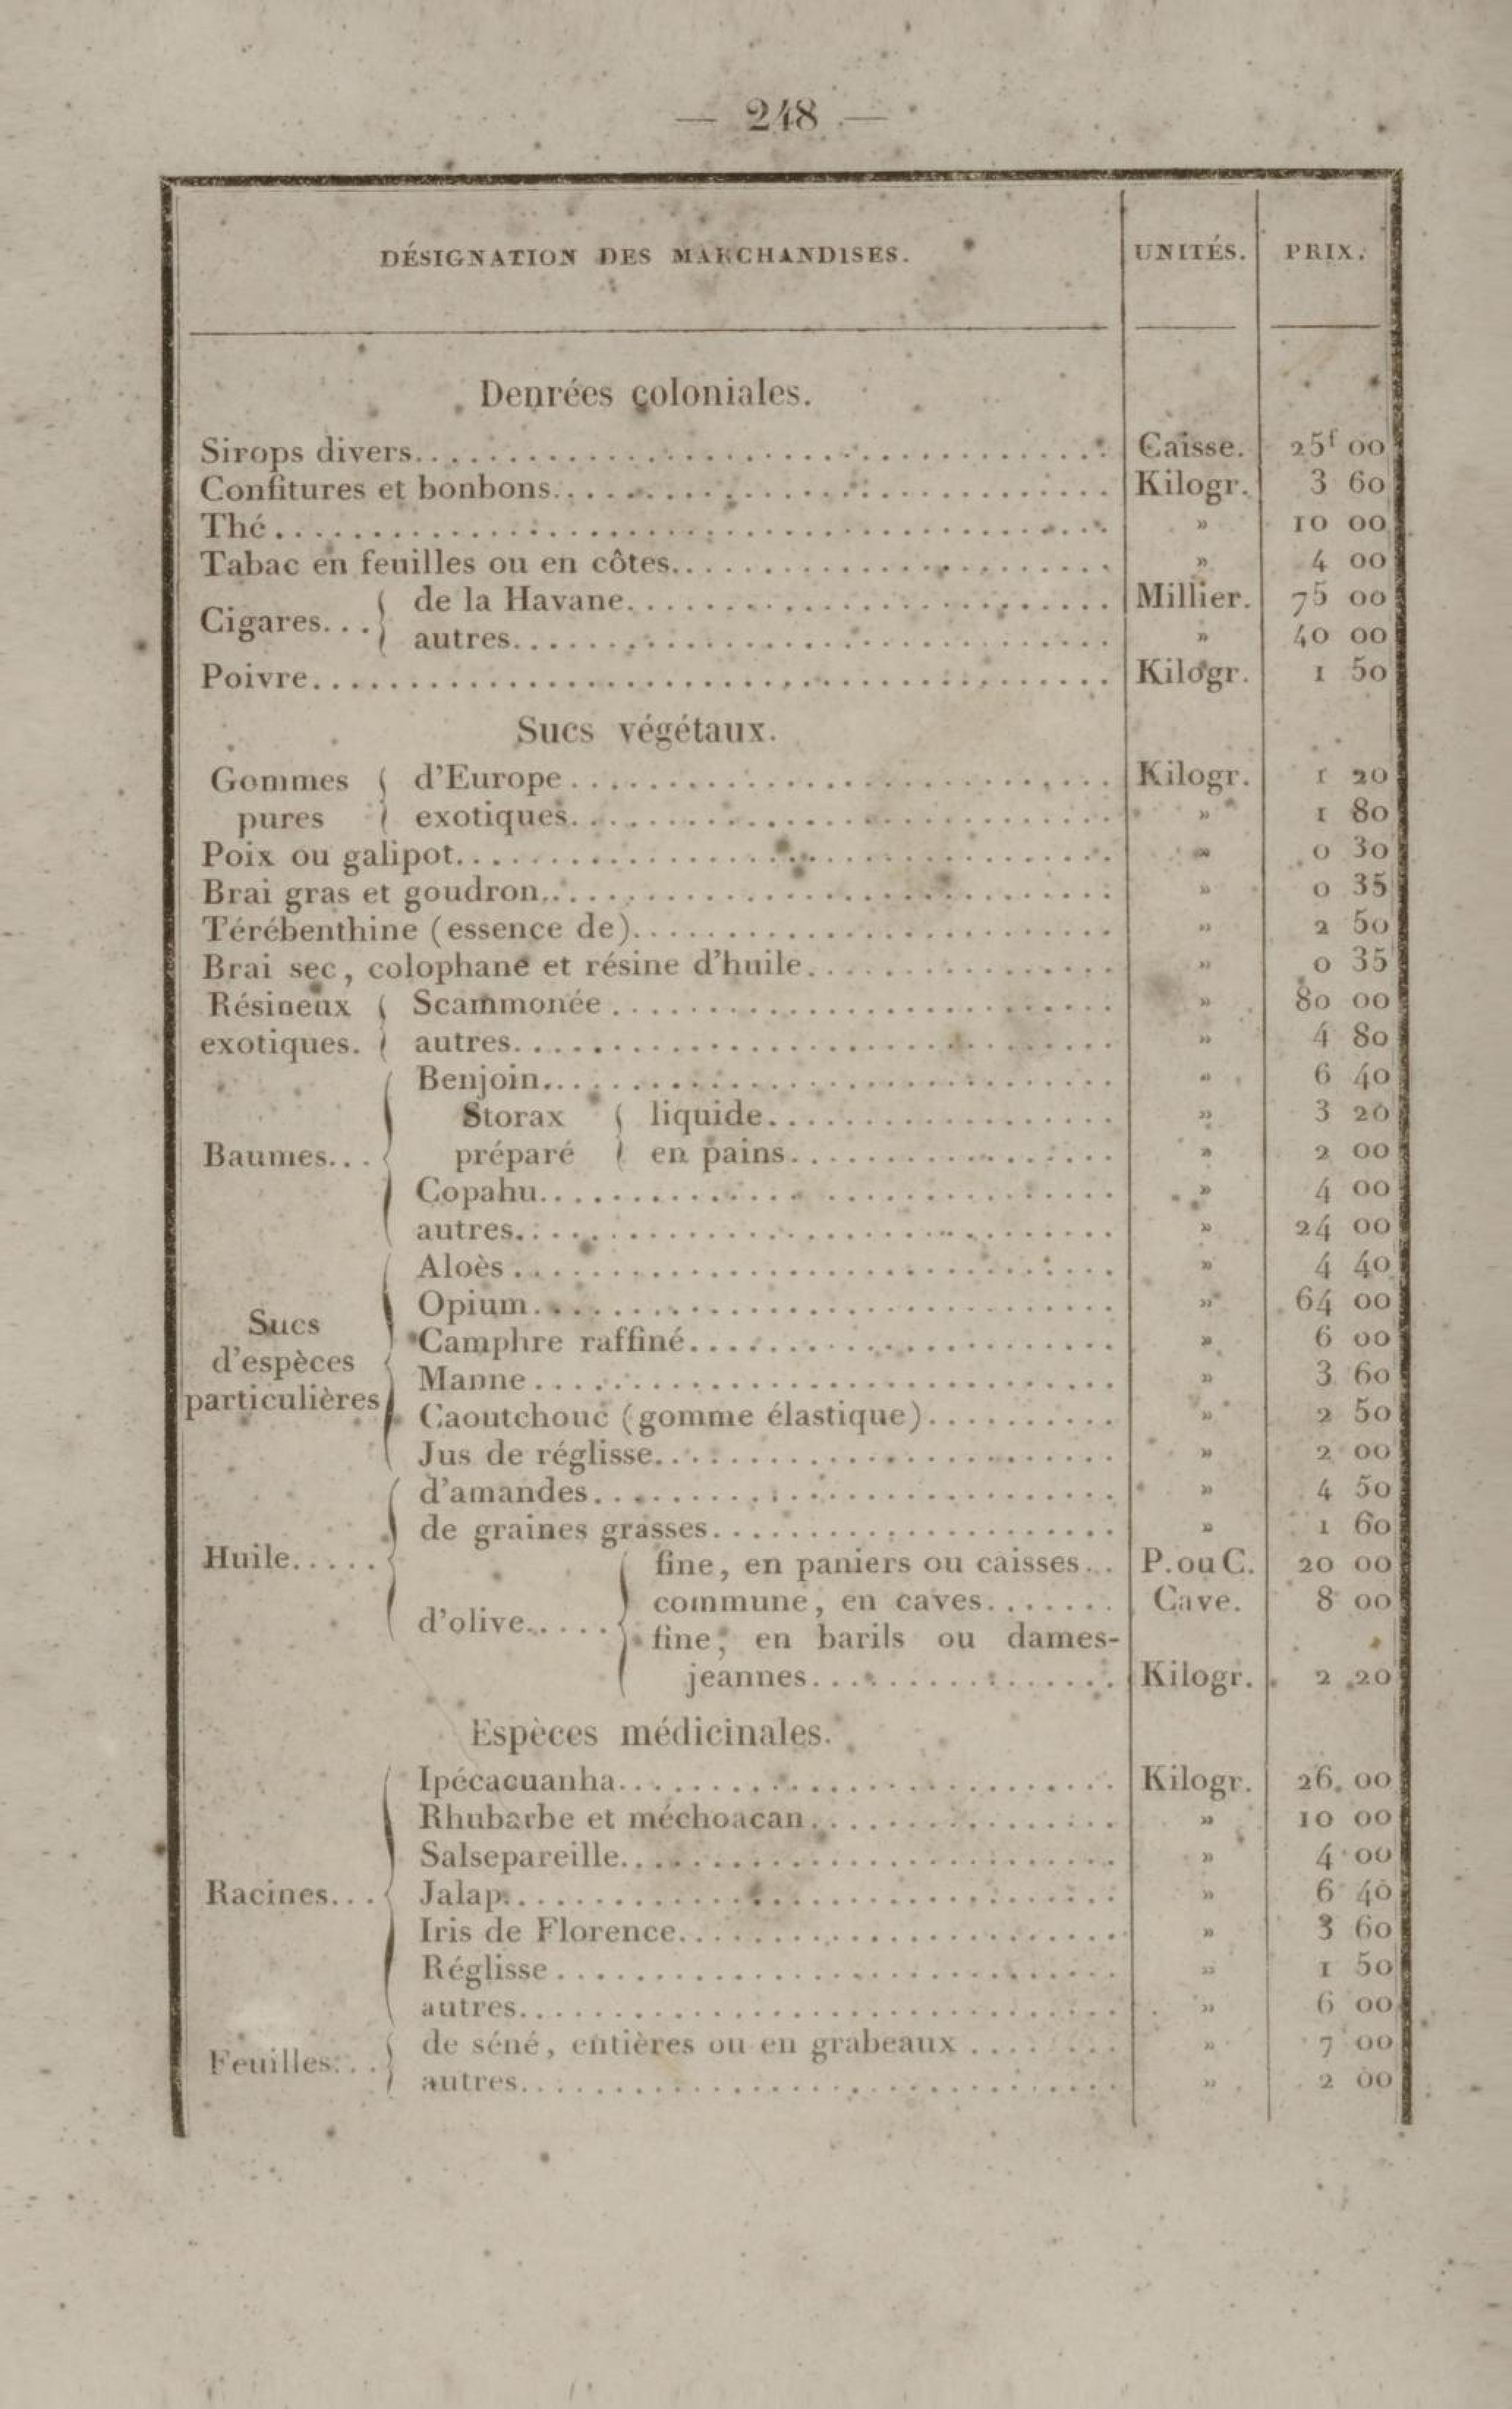 — 248 —
DÉSIGNATION DES MARCHANDISES. UNITÉS. PRIX.
Denrées coloniales.
Sirops divers. Caisse. 25f 00
Confitures et bonbons. Kilogr. 3 60
Thé. » 10 00
Tabac en feuilles ou en côtes. » 4 00
Cigares... { de la Havane. Millier. 75 00
autres. » 40 00
Poivre. Kilogr. 1 50
Sucs végétaux.
Gommes { d'Europe. Kilogr. 1 20
pures exotiques. » 1 80
Poix ou galipot. » 0 30
Brai gras et goudron. » 0 35
Térébenthine (essence de). » 2 50
Brai sec, colophane et résine d'huile. » 0 35
Résineux { Scammonée. » 80 00
exotiques. autres. » 4 80
Benjoin. » 6 40
Storax { liquide. » 3 20
Baumes... { préparé en pains. » 2 00
Copahu. » 4 00
autres. » 24 00
Aloès. » 4 40
Opium. » 64 00
Sucs
Camphre raffiné. » 6 00
d'espèces {
Manne. » 3 60
particulières
Caoutchouc (gomme élastique). » 2 50
Jus de réglisse. » 2 00
d'amandes. » 4 50
de graines grasses. » 1 60
Huile..... { fine, en paniers ou caisses... P. ou C. 20 00
commune, en caves. Cave. 8 00
d'olive..... { fine, en barils ou dames-
jeannes. Kilogr. 2 20
Espèces médicinales.
Ipécacuanha. Kilogr. 26 00
Rhubarbe et méchoacan. » 10 00
Salsepareille. » 4 00
Racines... { Jalap. » 6 40
Iris de Florence. » 3 60
Réglisse. » 1 50
autres. » 6 00
Feuilles... { de séné, entières ou en grabeaux. » 7 00
autres. » 2 00